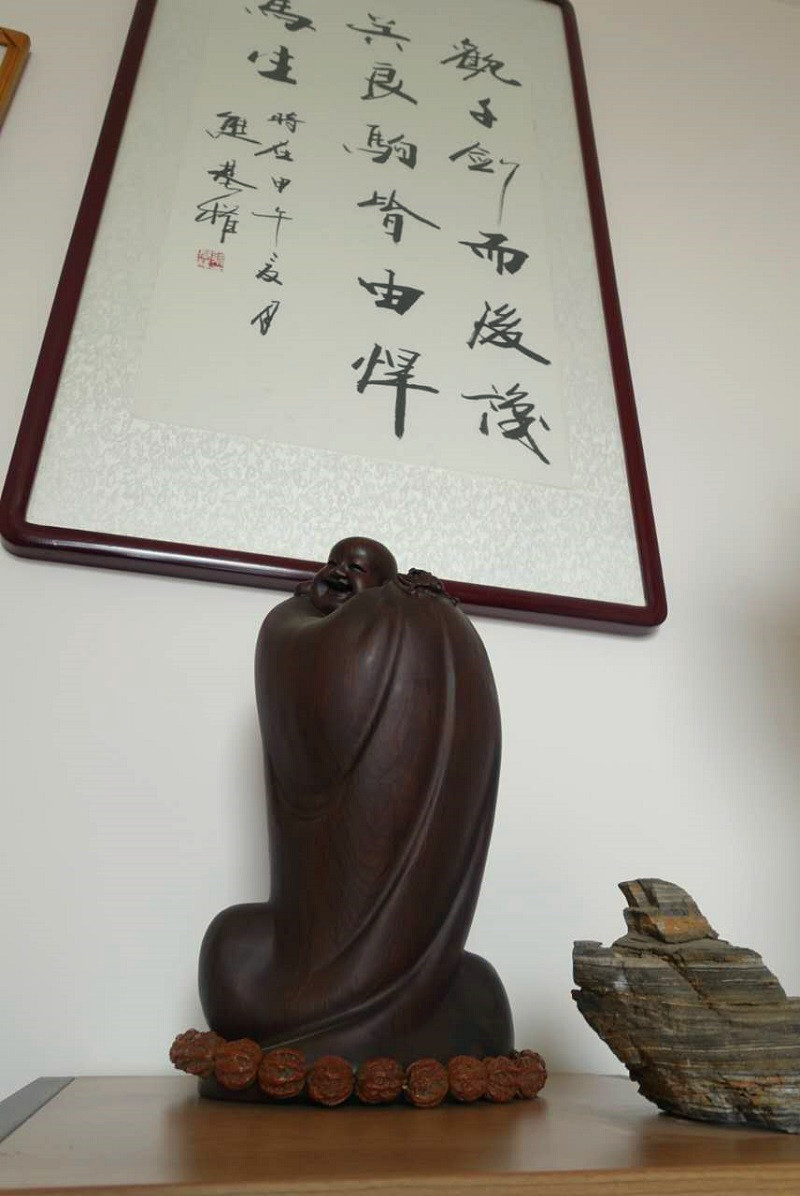 觀千剑而後識
器良駒皆由悍
馬生
時在甲午夏月
熊基權